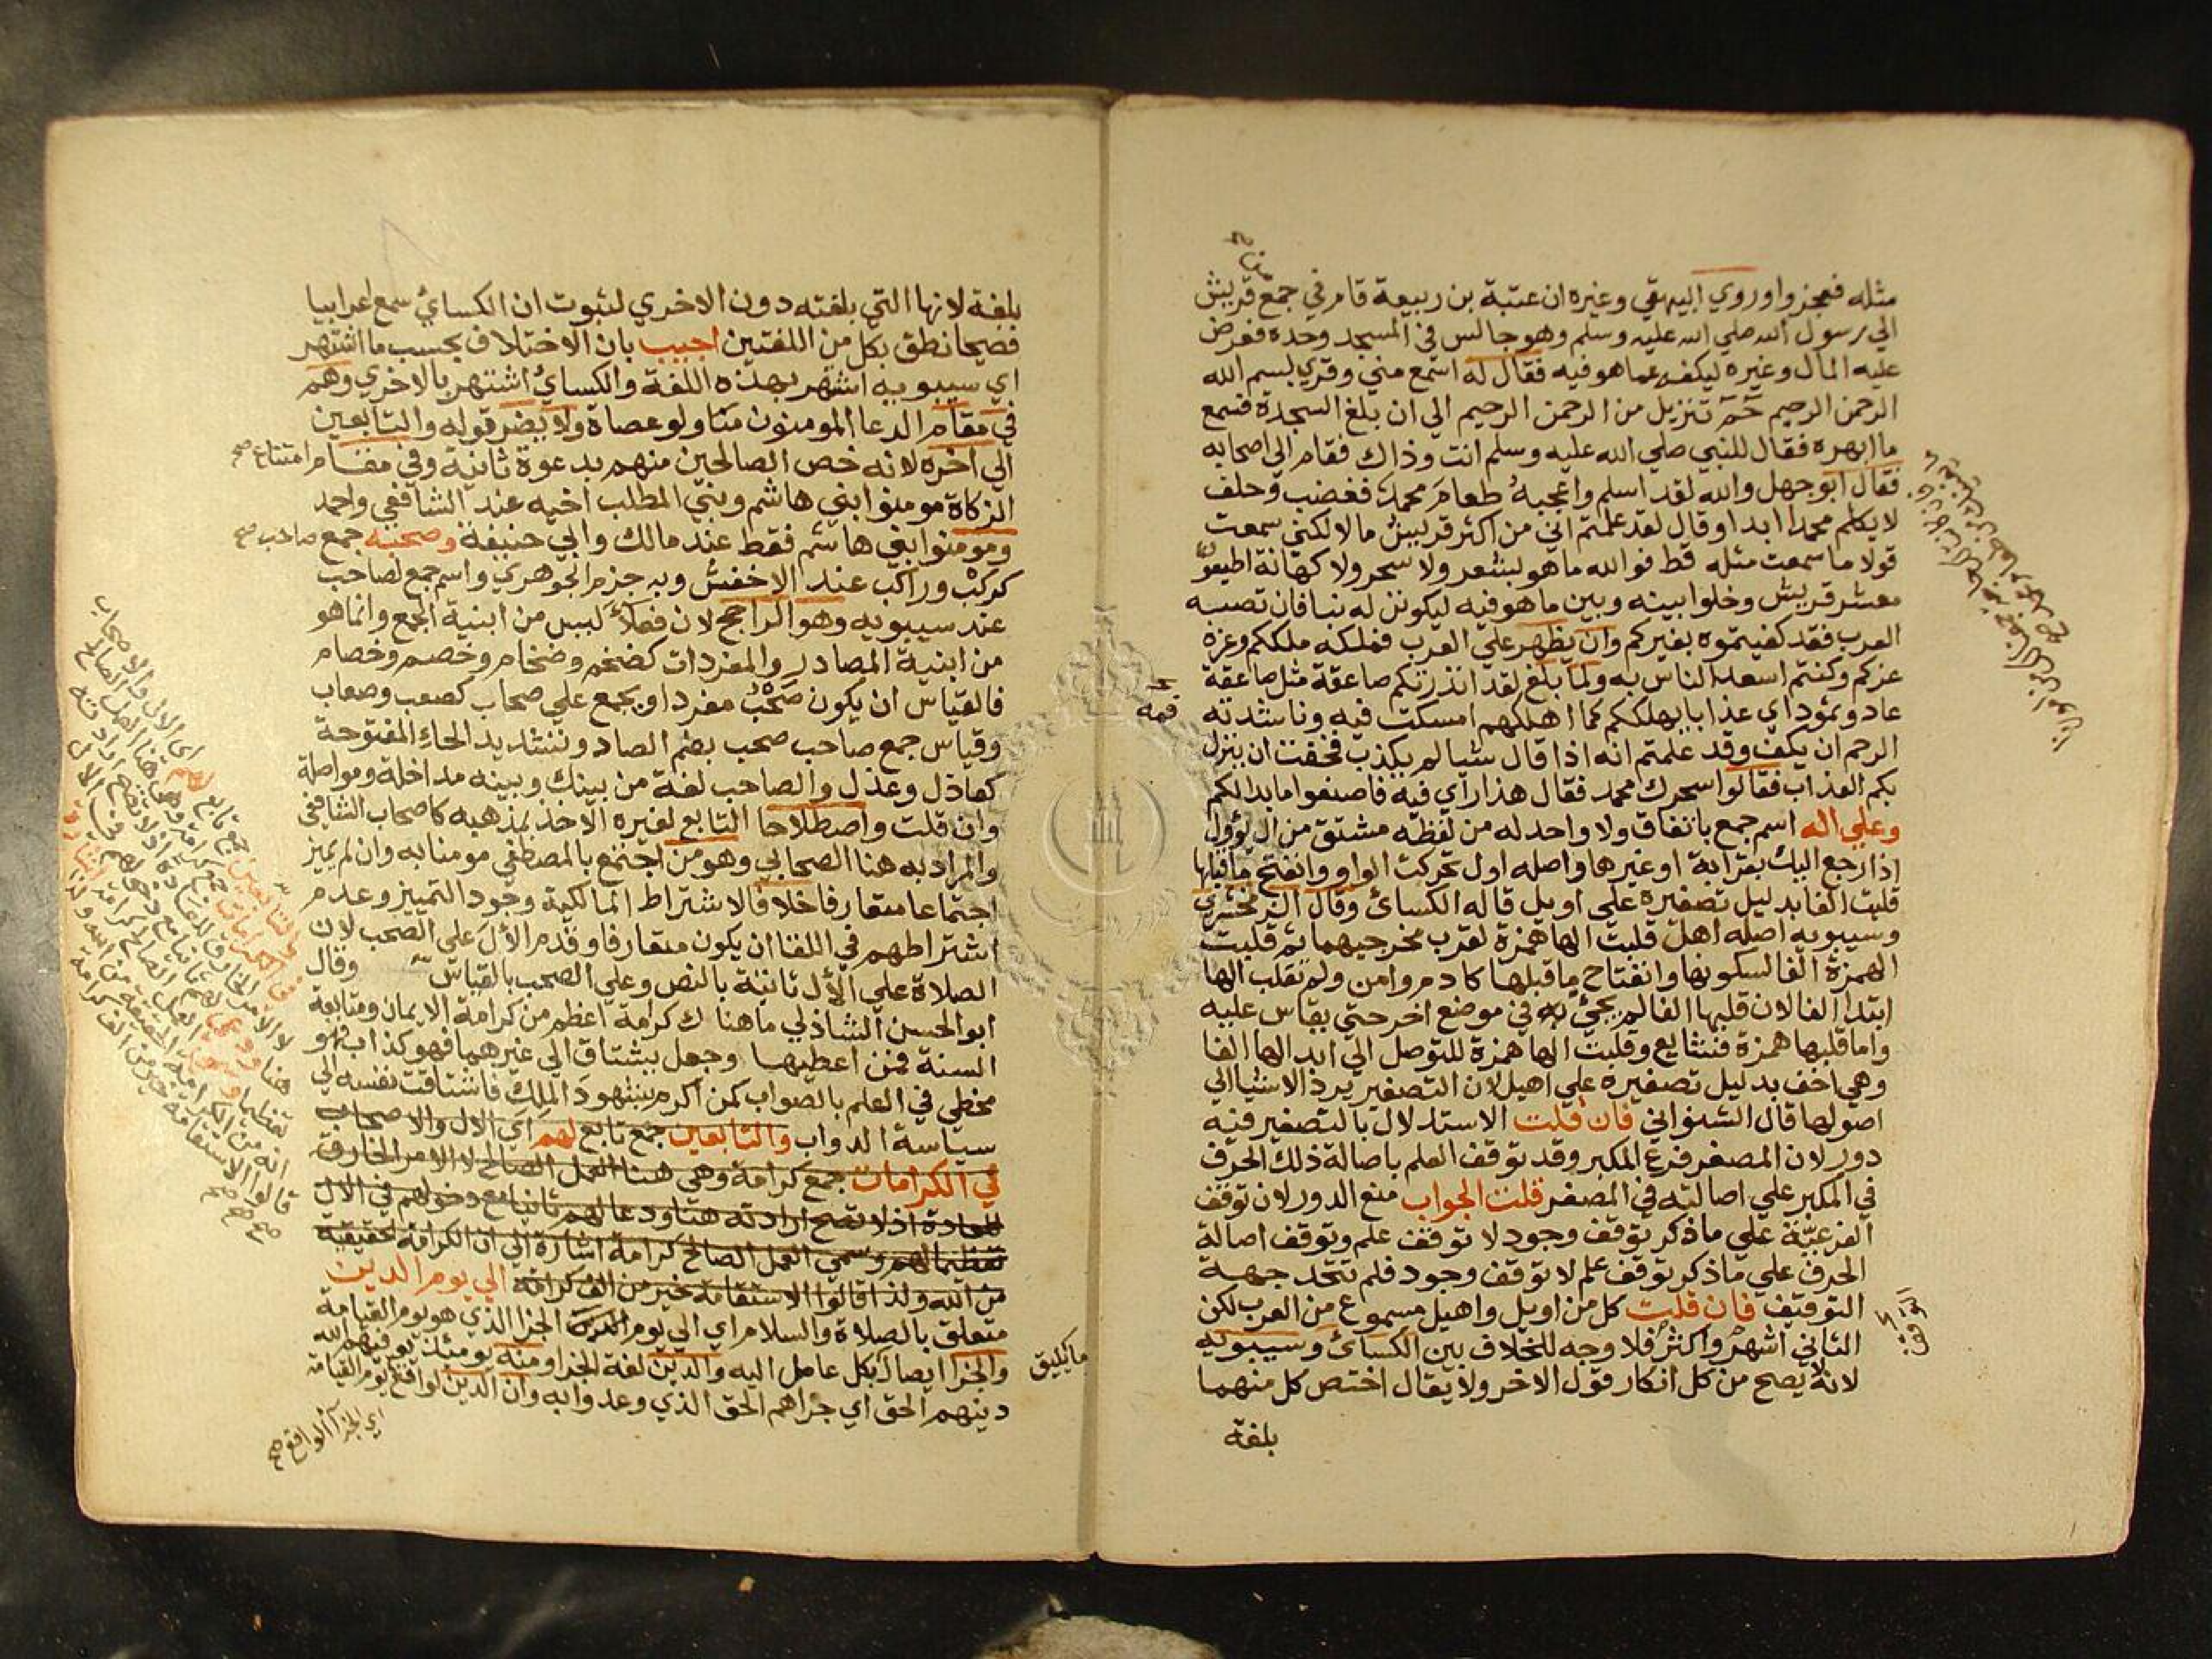 مثله فعجزوا وروي البيهقي وغيره ان عتبة بن ربيعة قام في جمع قريش
الي رسول الله صلي الله عليه وسلم وهو جالس في المسجد وحده فعرض
عليه المال وغيره ليكف عما هو فيه فقال له استمع مني وقري بسم الله
الرحمن الرحيم حم تنزيل من الرحمن الرحيم الي ان بلغ السجدة فسمع
ما ابهره فقال للنبي صلي الله عليه وسلم انت وذاك فقام الي اصحابه
فقال ابو جهل والله لقد اسلم واعجبه طعام محمد فغضب وحلف
لا يكلم محمدا ابدا وقال لقد علمتم اني من اكثر قريش مالا لكني سمعت
قولا ما سمعت مثله قط فوالله ما هو بشعر ولا سحر ولا كهانة اطيعوني
معشر قريش وخلوا بينه وبين ما هو فيه ليكونن له نبا فان تصبه
العرب فقد كفيتموه بغيركم وان يظهر علي العرب فملكه ملككم وعزه
عزكم وكنتم اسعد الناس به ولما بلغ لقد انذرتكم صاعقة مثل صاعقة
عاد وثمود اي عذابا يهلككم كما اهلكهم امسكت فيه وناشدته
الرحم ان يكف وقد علمتم انه اذا قال شيا لم يكذب فخفت ان ينزل
بكم العذاب فقالوا سحرك محمد فقال هذا رأي فيه فاصنعوا ما بدا لكم
وعلي اله اسم جمع باتفاق ولا واحد له من لفظه مشتق من ال يؤول
اذا رجع اليك بقرابة او غيرها واصله اول تحركت الواو وانفتح ما قبلها
قلبت الفا بدليل تصغيره علي اويل قاله الكسائ وقال الزمخشري
وسيبويه اصله اهل قلبت الها همزة لقرب مخرجيهما ثم قلبت
الهمزة الفا لسكونها وانفتاح ما قبلها كادم وامن ولم تقلب الها
ابتدا الفا لان قلبها الفا لم يجئ في موضع اخر حتي يقاس عليه
واما قلبها همزة فشايع وقلبت الها همزة للتوصل الي ابدالها الفا
وهي اخف بدليل تصغيره علي اهيل لان التصغير يرد الاشيا الي
اصولها قال الشنواني فان قلت الاستدلال بالتصغير فيه
دور لان المصغر فرع المكبر وقد توقف العلم باصالة ذلك الحرف
في المكبر علي اصالته في المصغر قلت الجواب منع الدور لان توقف
الفرعية علي ما ذكر توقف وجود لا توقف علم وتوقف اصالة
الحرف علي ما ذكر توقف علم لا توقف وجود فلم تتحد جهة
التوقف فان قلت كل من اويل واهيل مسموع من العرب لكن
الثاني اشهر واكثر فلا وجه للخلاف بين الكسائ وسيبويه
لانه لا يصح من كل انكار قول الاخر ولا يقال اختص كل منهما
بلغة
بلغة لانها التي بلغته دون الاخري لثبوت ان الكسائ سمع اعرابيا
فصيحا نطق بكل من اللغتين اجيب بان الاختلاف بحسب ما اشتهر
اي سيبويه اشتهر بهذه اللغة والكسائ اشتهر بالاخري وهم
في مقام الدعا المومنون منا ولو عصاة ولا يضر قوله والتابعين
الي اخره لانه خص الصالحين منهم بدعوة ثانية وفي مقام امتناع صح
الزكاة مومنوا بني هاشم وبني المطلب اخيه عند الشافعي واحمد
ومومنوا بني هاشم فقط عند مالك وابي حنيفة وصحبه جمع صاحب صح
كركب وراكب عند الاخفش وبه جزم الجوهري واسم جمع لصاحب
عند سيبويه وهو الراجح لان فعلا ليس من ابنية الجمع وانما هو
من ابنية المصادر والمفردات كضخم وضخام وخصم وخصام
فالقياس ان يكون صحب مفردا ويجمع علي صحاب كصعب وصعاب
وقياس جمع صاحب صحب بضم الصاد وتشديد الحاء المفتوحة
كعاذل وعذل والصاحب لغة من بينك وبينه مداخلة ومواصلة
وان قلت واصطلاحا التابع لغيره الاخذ بمذهبه كاصحاب الشافعي
والمراد به هنا الصحابي وهو من اجتمع بالمصطفي مومنا به وان لم يميز
اجتماعا متعارفا خلافا لاشتراط المالكية وجود التمييز وعدم
اشتراطهم في اللقا ان يكون متعارفا وقدم الأل علي الصحب لان
الصلاة علي الأل ثابتة بالنص وعلي الصحب بالقياس وقال
ابو الحسن الشاذلي ما هناك كرامة اعظم من كرامة الايمان ومتابعة
السنة فمن اعطيها وجعل يشتاق الي غيرهما فهو كذاب او
مخطي في العلم بالصواب كمن اكرم بشهود الملك فاشتاقت نفسه الي
سياسة الدواب والتابعين جمع تابع لهم اي الال والاصحاب
في الكرامات جمع كرامة وهي هنا العمل الصالح لا الامر الخارق
للعادة اذ لا تصح ارادته هنا ودعا لهم ثانيا مع دخولهم في الال
تعظيما لهم وسمي العمل الصالح كرامة اشارة الي ان الكرامة الحقيقية
من الله ولذا قالوا الاستقامة خير من الف كرامة الي يوم الدين
متعلق بالصلاة والسلام اي الي يوم الجزا الذي هو يوم القيامة
والجزا ايصال كل عامل اليه والدين لغة الجزا ومنه يومئذ يوفيهم الله
دينهم الحق اي جزاهم الحق الذي وعدوا به وان الدين لواقع يوم القيامة
ما يليق
اي الجزا الواقع صح